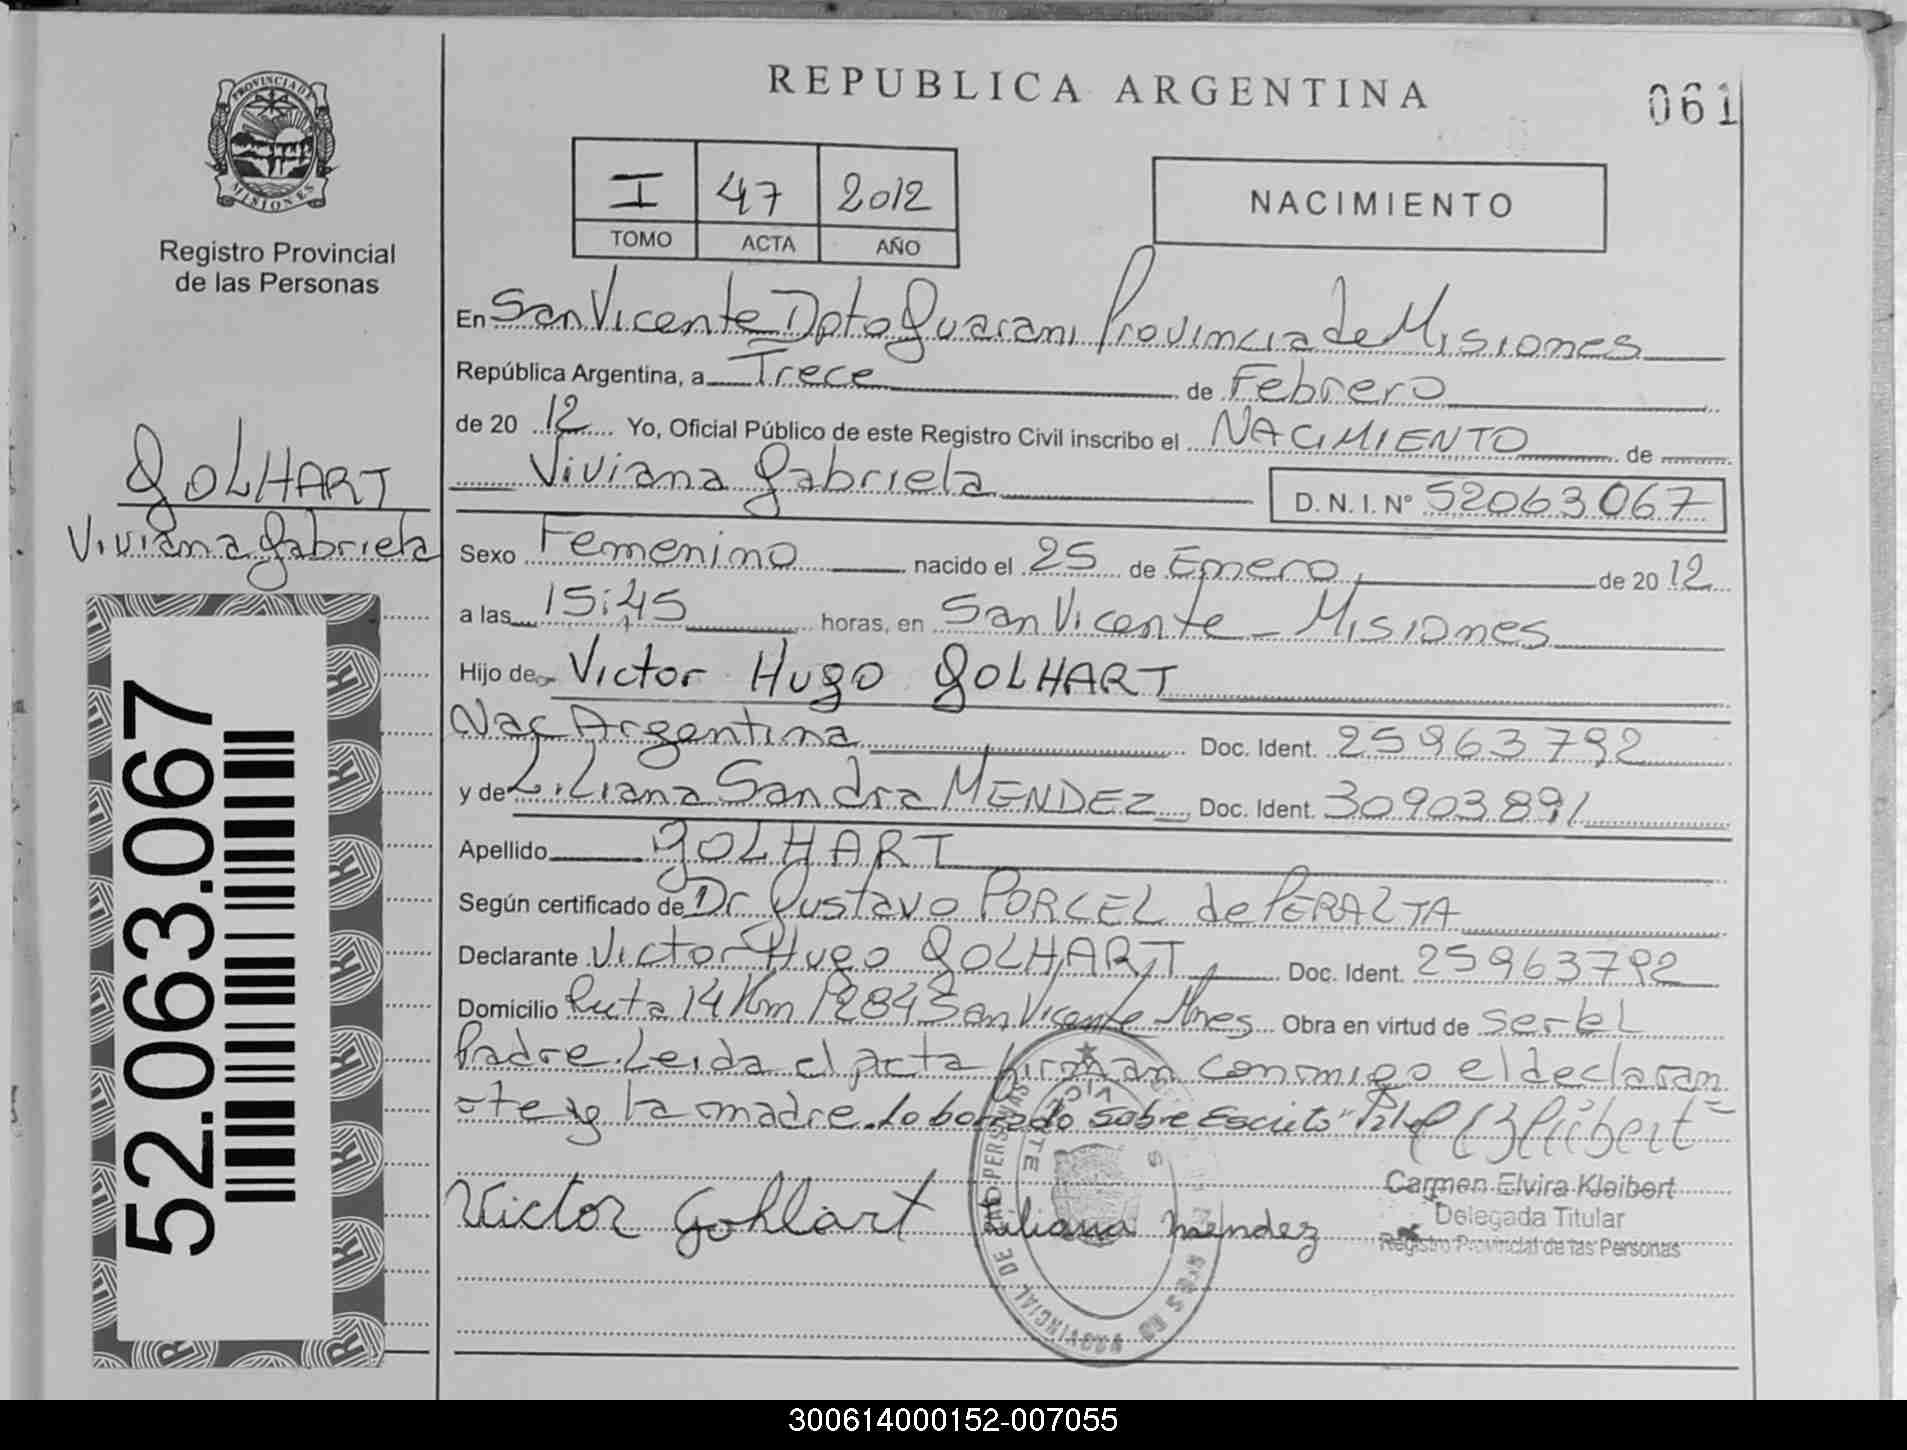 REPUBLICA ARGENTINA
061
PROVINCIA DE MISIONES
Registro Provincial
de las Personas
I 47 2012
TOMO ACTA AÑO
NACIMIENTO
En San Vicente Dpto Guarani Provincia de Misiones
República Argentina, a Trece de Febrero
de 20 12 Yo, Oficial Público de este Registro Civil inscribo el NACIMIENTO de
Viviana Gabriela D. N. I. Nº 52063067
GOLHART
Viviana Gabriela
52.063.067
Sexo Femenino nacido el 25 de Enero de 20 12
a las 15:45 horas, en San Vicente - Misiones
Hijo de Victor Hugo GOLHART
Nac Argentina Doc. Ident. 25963792
y de Liliana Sandra MENDEZ Doc. Ident. 30903891
Apellido GOLHART
Según certificado de Dr Gustavo PORCEL de PERALTA
Declarante Victor Hugo GOLHART Doc. Ident. 25963792
Domicilio Ruta 14 Km 1284 San Vicente Mnes Obra en virtud de ser el
Padre. Leida el acta firman conmigo el declaran
-te y la madre. Lo borrado sobre Escrito
Victor Gohlart Liliana mendez
Carmen Elvira Kleibert
Delegada Titular
Registro Provincial de las Personas
300614000152-007055